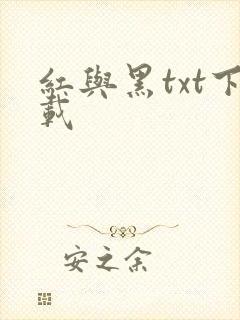 紅與黑txt下
載
安之余